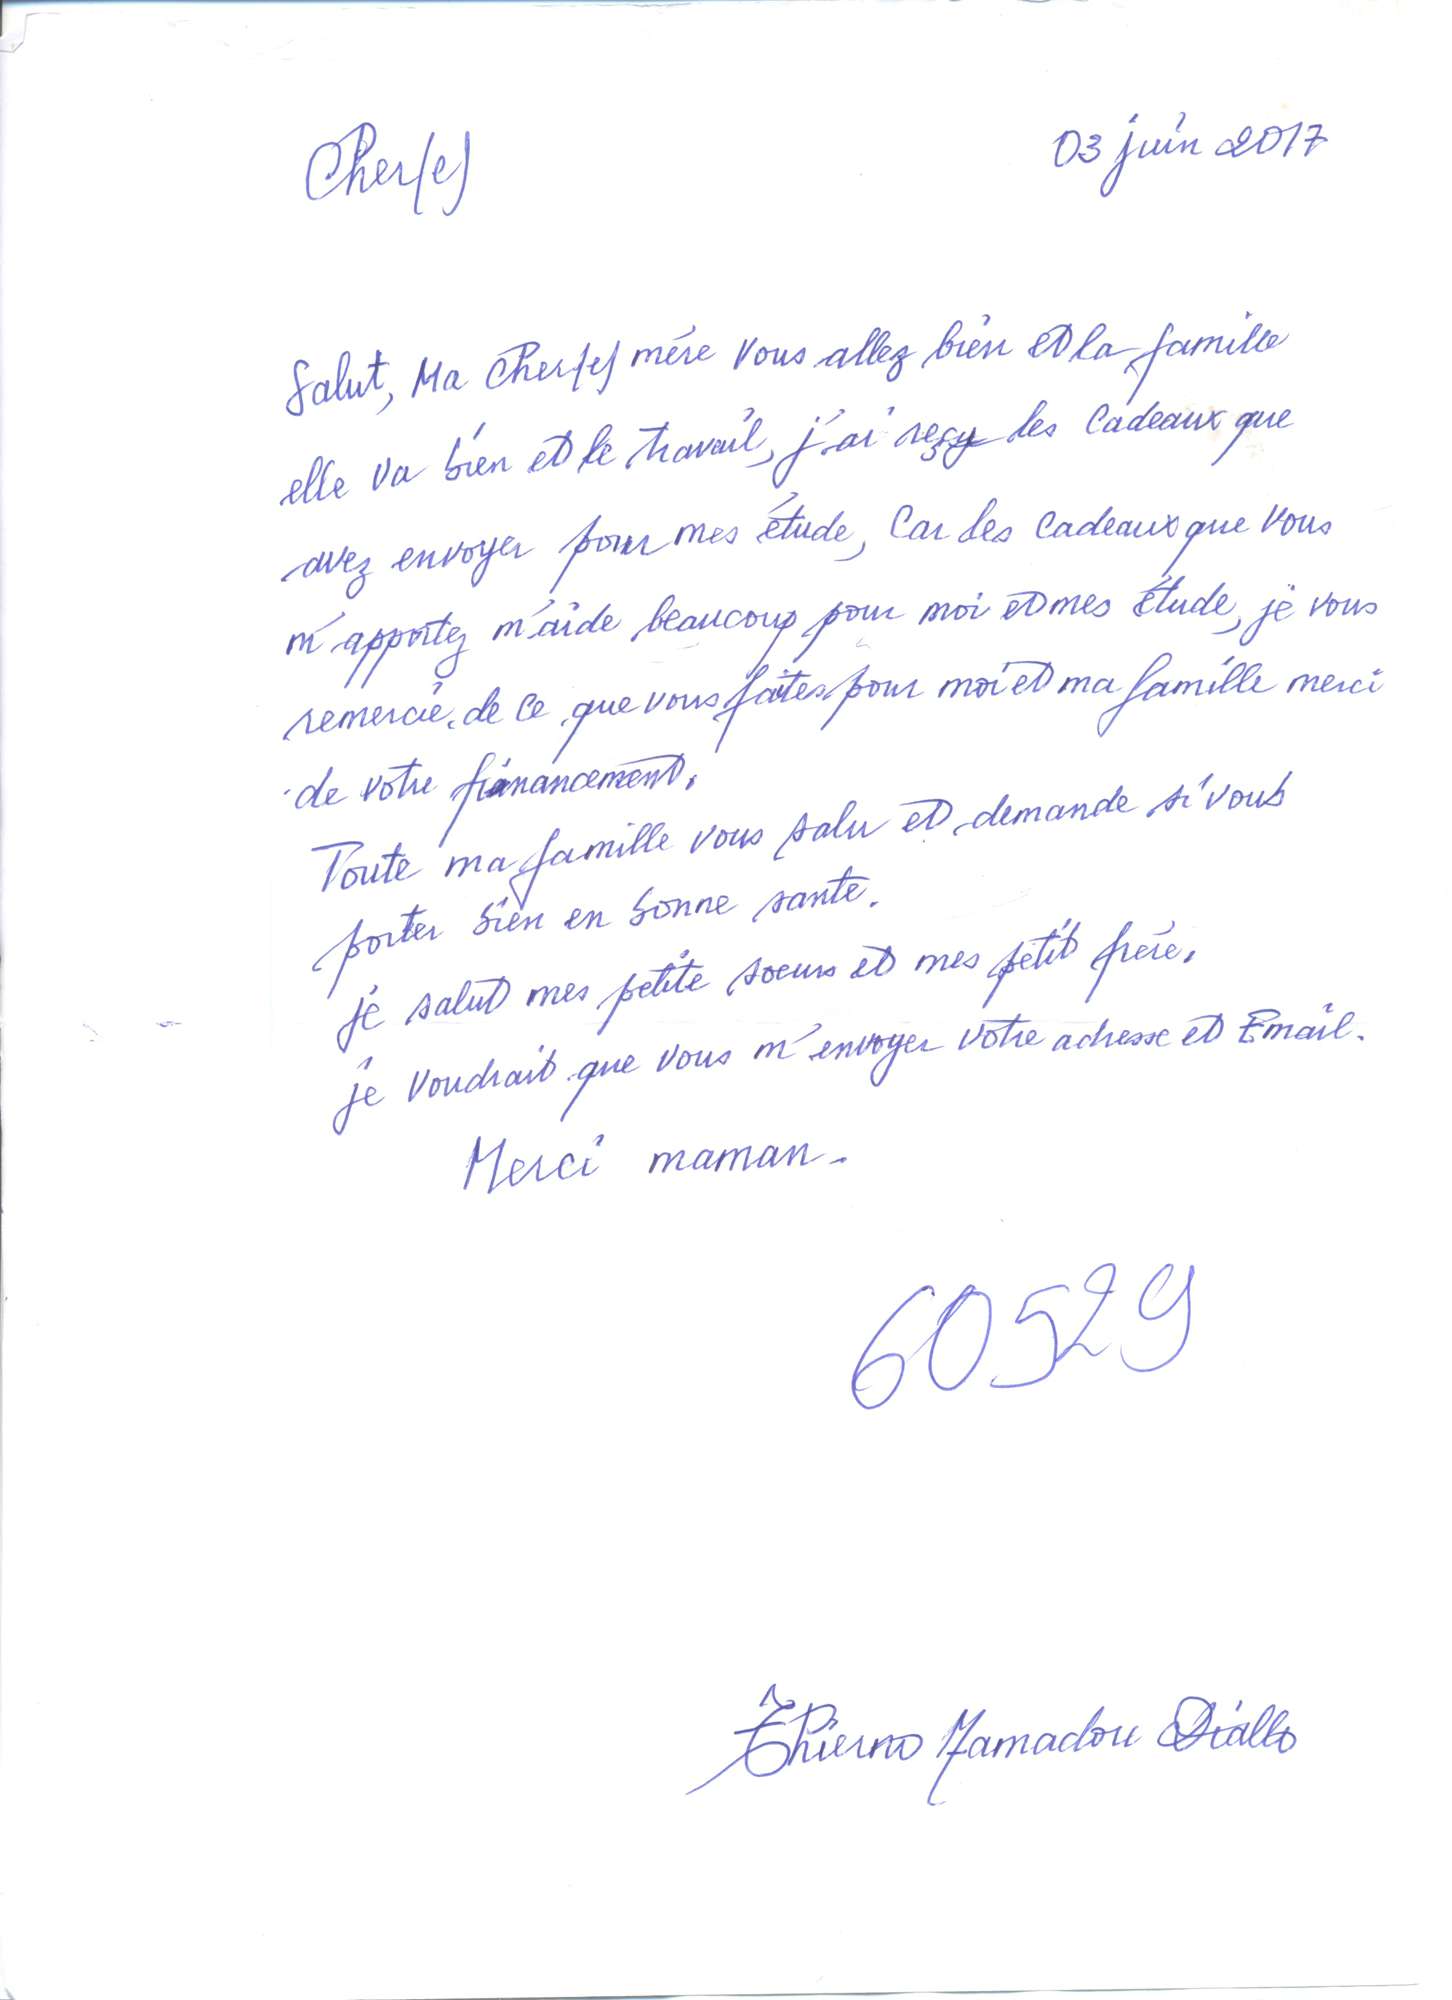 Cher(e)
03 juin 2017
Salut, Ma Cher(e) mére vous allez bien et la famille
elle va bien et le travail, j'ai reçu les cadeaux que
avez envoyer pour mes étude, Car les cadeaux que vous
m'apportez m'aide beaucoup pour moi et mes étude, je vous
remercie de ce que vous faites pour moi et ma famille merci
de votre finanancement.
Toute ma famille vous salu et demande si vous
porter bien en bonne sante.
je salut mes petite soeurs et mes petit frére.
je voudrait que vous m'envoyer votre adresse et Email.
Merci maman.
60529
Thierno Mamadou Diallo